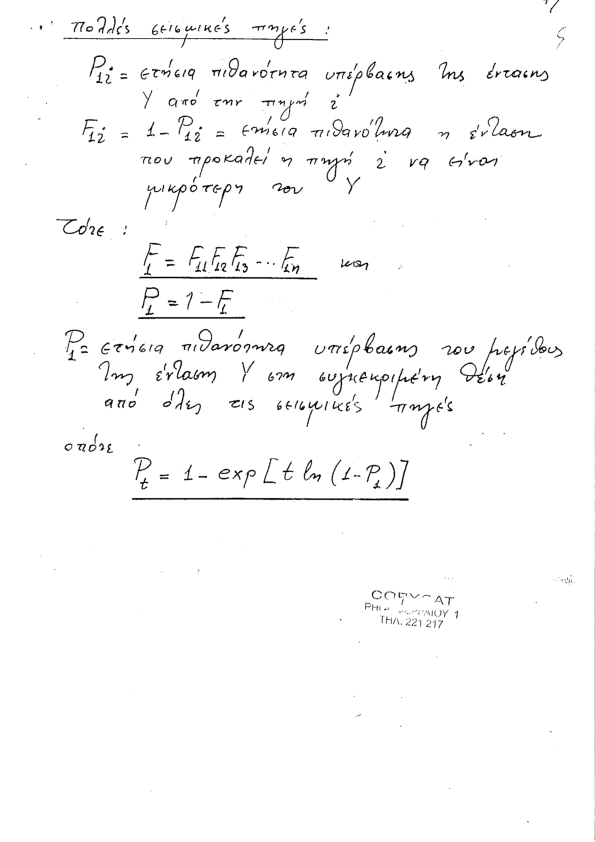 Πολλές σεισμικές πηγές :
P₁ᵢ = ετήσια πιθανότητα υπέρβασης της έντασης
Y από την πηγή i
F₁ᵢ = 1 - P₁ᵢ = ετήσια πιθανότητα η ένταση
που προκαλεί η πηγή i να είναι
μικρότερη του Y
Τότε :
F₁ = F₁₁ F₁₂ F₁₃ ... F₁ₙ και
P₁ = 1 - F₁
P₁ = ετήσια πιθανότητα υπέρβασης του μεγέθους
της ένταση Y στη συγκεκριμένη θέση
από όλες τις σεισμικές πηγές
οπότε
Pₜ = 1 - exp [t ln (1 - P₁)]
ΤΗΛ. 221 217